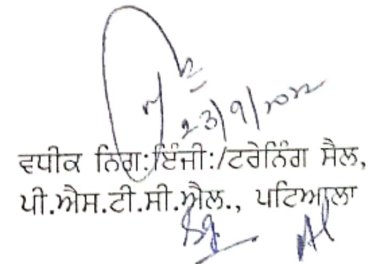 23/9/2022
ਵਧੀਕ ਨਿਗ:ਇੰਜੀ:/ਟਰੇਨਿੰਗ ਸੈਲ,
ਪੀ.ਐਸ.ਟੀ.ਸੀ.ਐਲ., ਪਟਿਆਲਾ